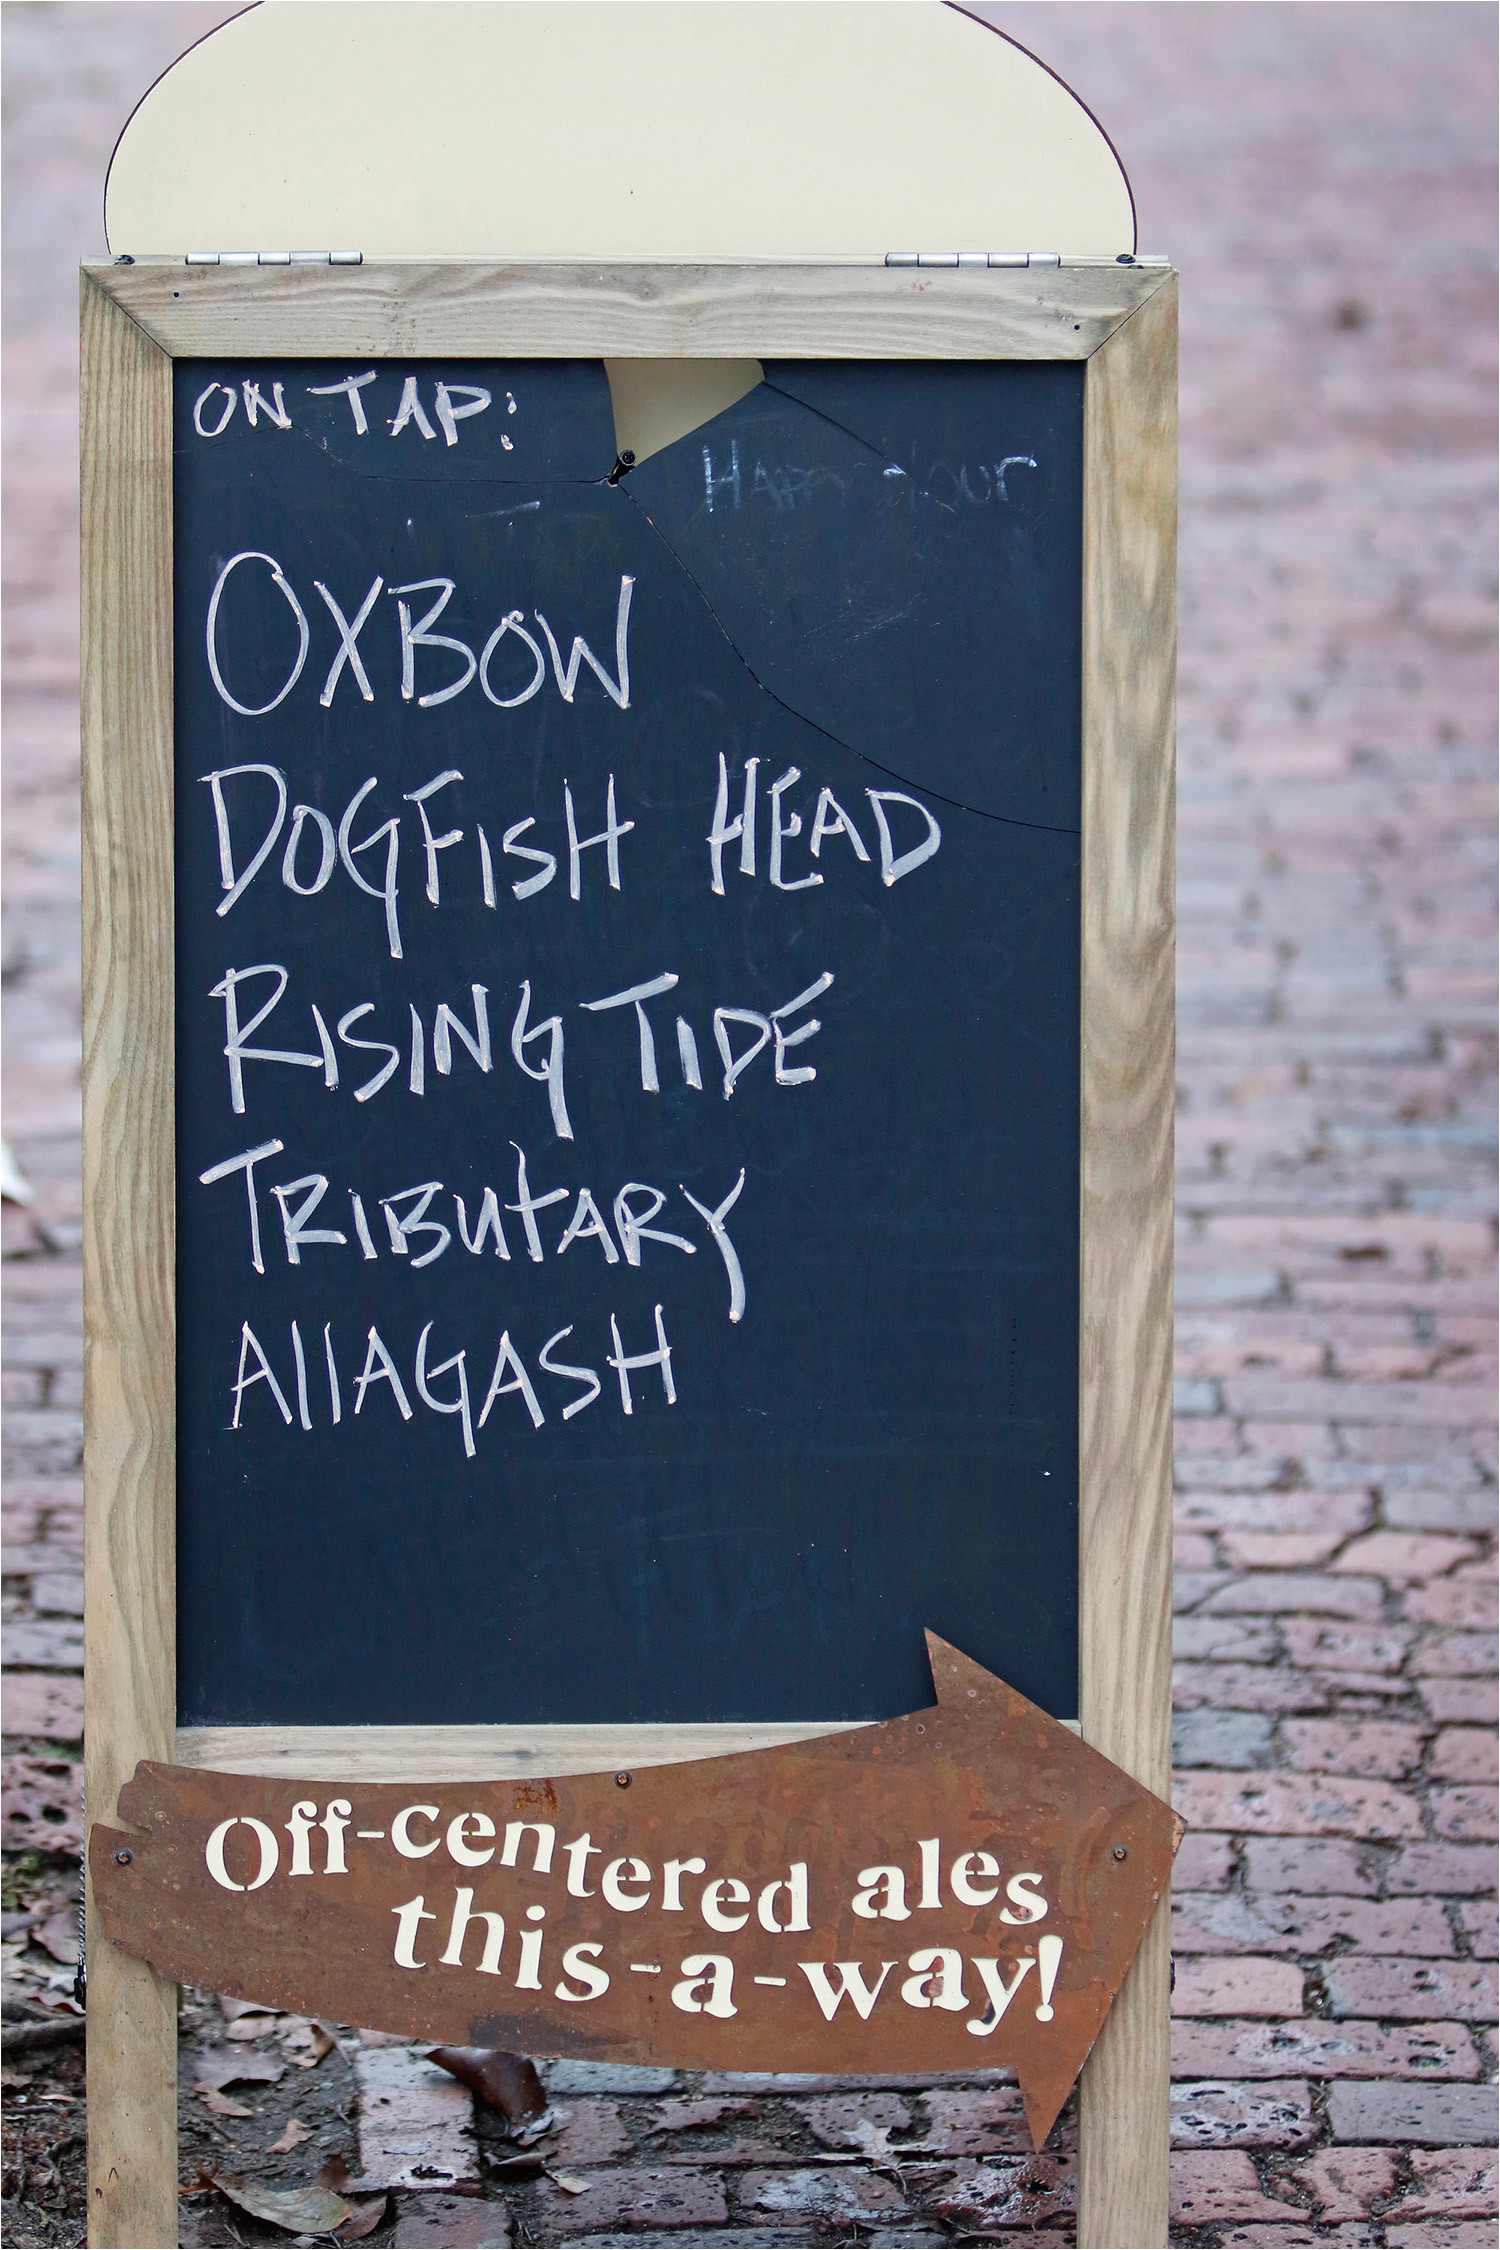 ON TAP:
Happy Hour
OXBOW
DOGFISH HEAD
RISING TIDE
TRIBUTARY
AllAGASH
Off-centered ales
this-a-way!